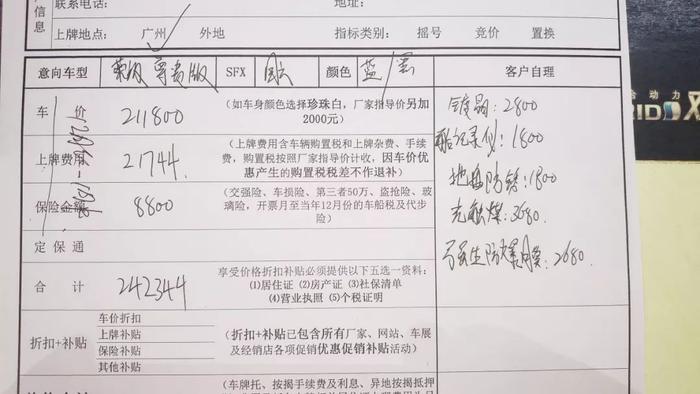 联系电话：
地址：
信息
上牌地点： 广州 外地 指标类别： 摇号 竞价 置换
意向车型 尊贵版 SFX 国六 颜色 蓝/黑 客户自理
车 价 211800 （如车身颜色选择珍珠白，厂家指导价另加2000元）
镀晶：2800
上牌费用 21744 （上牌费用含车辆购置税和上牌杂费、手续费，购置税按照厂家指导价计收，因车价优惠产生的购置税税差不作退补）
记录仪：1800
地盘防锈：1800
保险金额 8800 （交强险、车损险、第三者50万、盗抢险、玻璃险，开票月至当年12月份的车船税及代步险）
光触媒：3680
定保通
强生防爆膜：2680
合 计 242344 享受价格折扣补贴必须提供以下五选一资料：
(1)居住证 (2)房产证 (3)社保清单
(4)营业执照 (5)个税证明
折扣+补贴
车价折扣
上牌补贴
保险补贴
其他补贴
（折扣+补贴已包含所有厂家、网站、车展及经销店各项促销优惠促销补贴活动）
（车牌托、按揭手续费及利息、异地按揭抵押
合动力